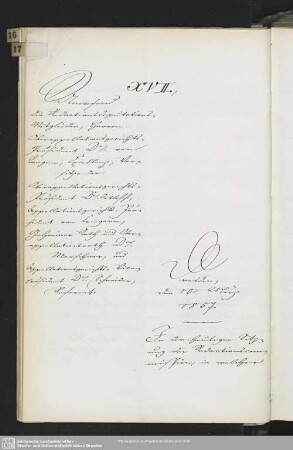 16
17
XVII.,
Anwesend
die Redactionsdeputations-
Mitglieder, Herren
Oberappellationsgerichts-
Präsident Dr. von
Langenn, Excellenz, Vor-
sitzender
Oberappellationsgerichts-
Präsident
Appellationsgerichts Prä-
sident von Criegern,
Geheimer Rath und Ober-
appellationsrath Dr.
Marschner, und
Appellationsgerichts Vice-
präsident Dr. Schneider,
Referent.
Dresden,
den 10n
1857.
In der heutigen Sitz-
ung der Redactionscom-
mission, in welcher